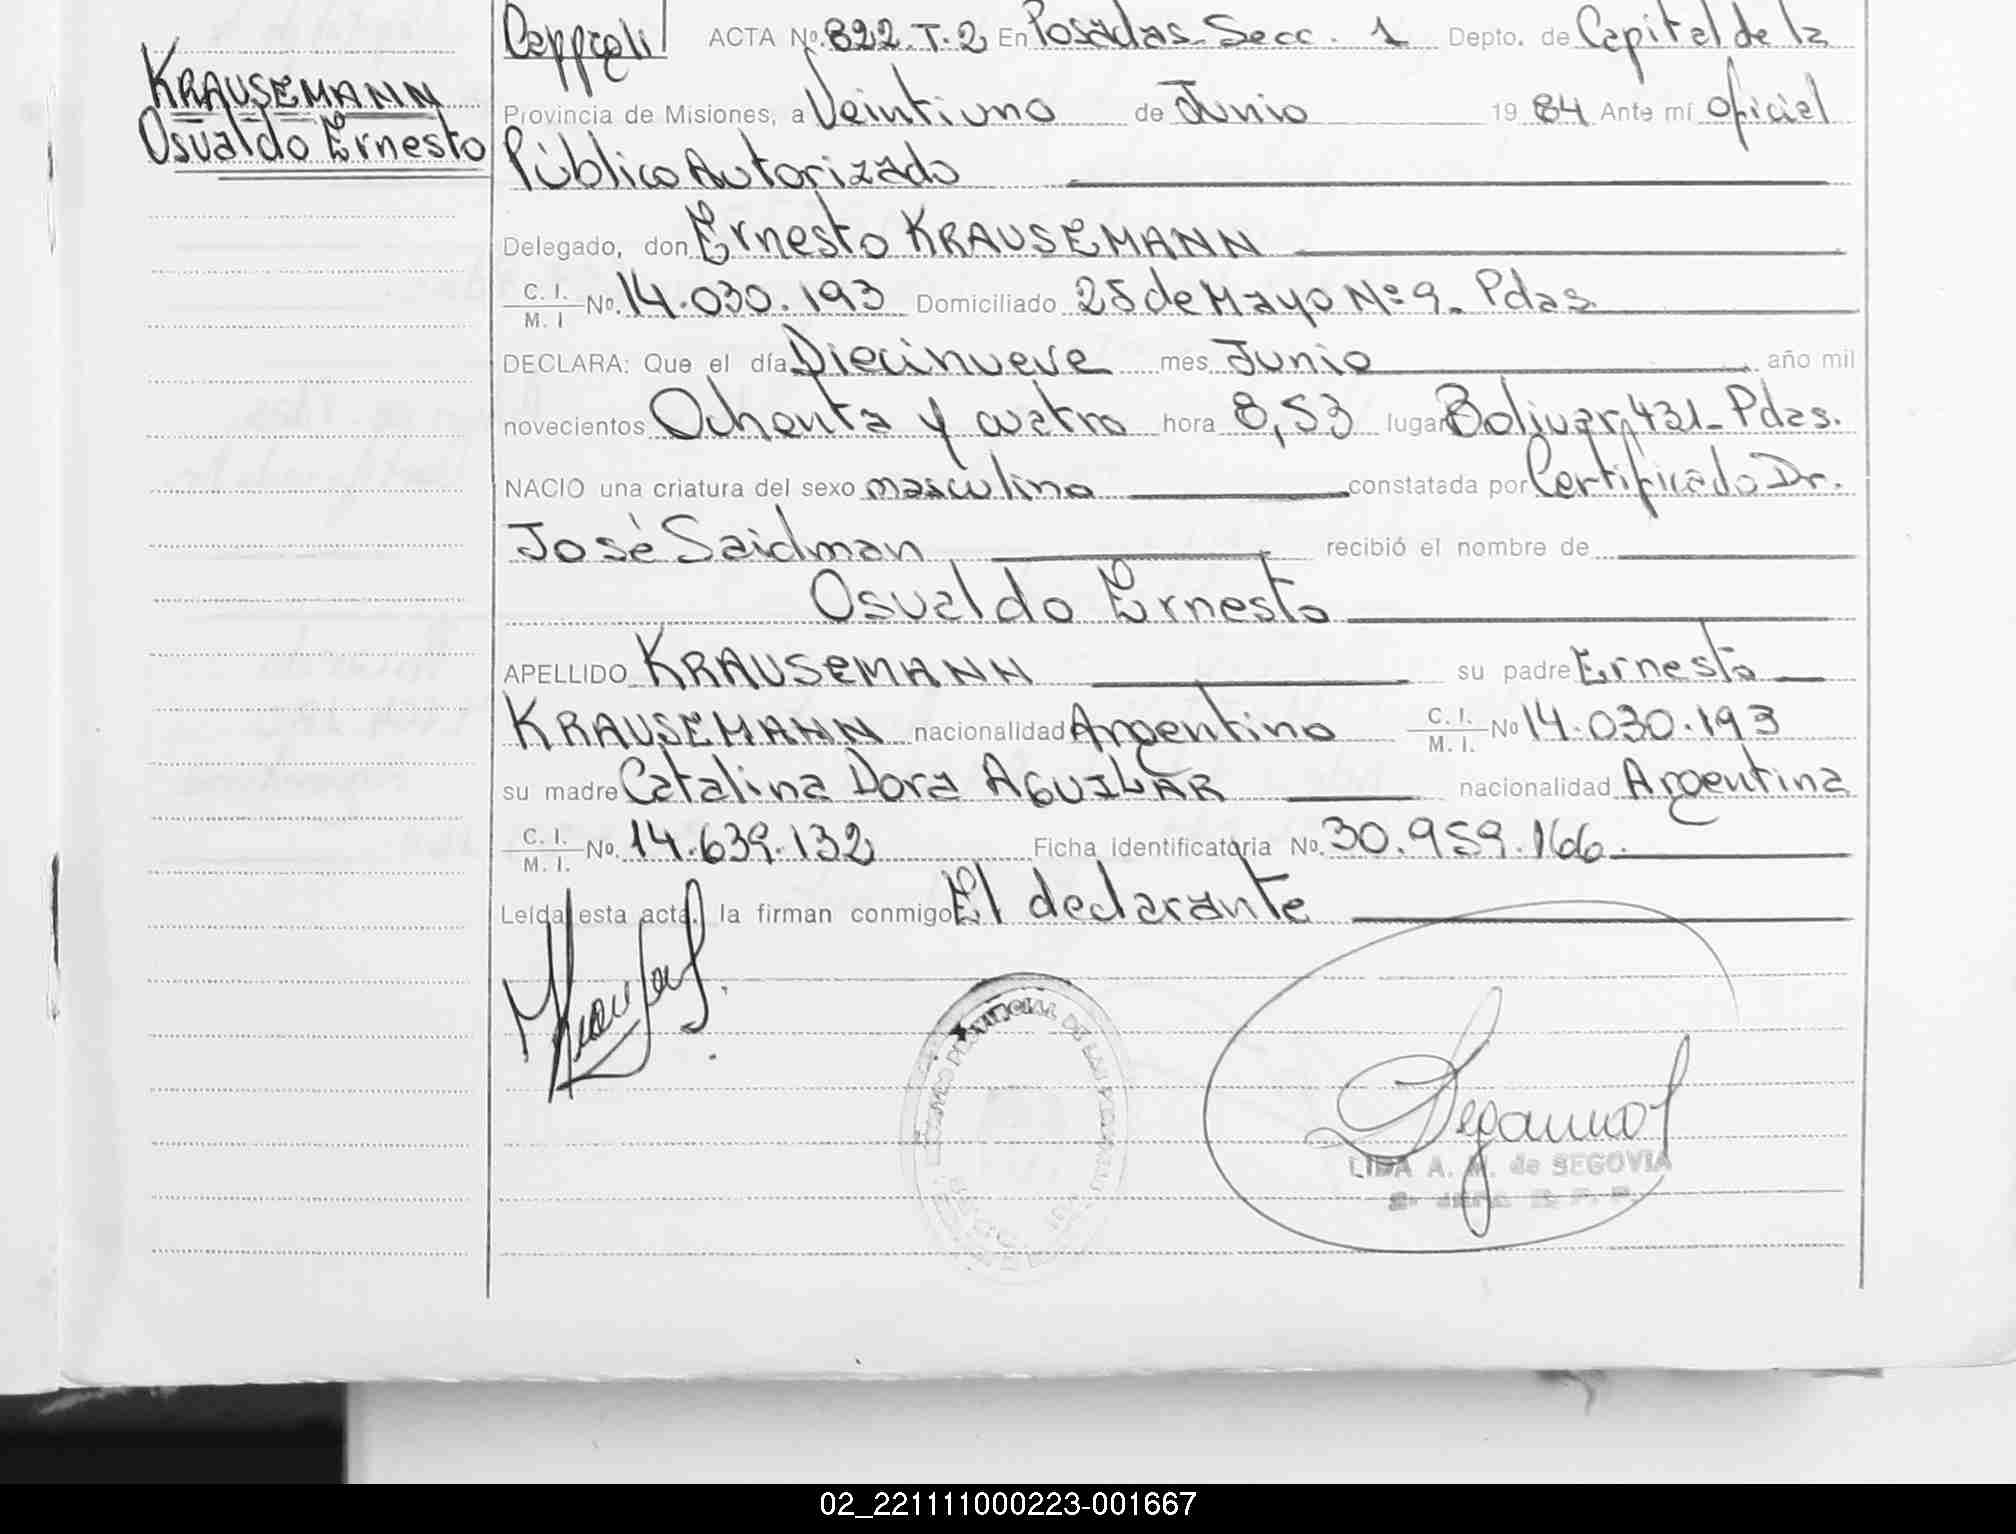 KRAUSEMANN
Osvaldo Ernesto
ACTA No. 822. T. 2 En Posadas Secc. 1 Depto. de Capital de la
Provincia de Misiones, a Veintiuno de Junio 1984 Ante mí Oficial
Público Autorizado
Delegado, don Ernesto KRAUSEMANN
C. I. M. I No. 14.030.193 Domiciliado 25 de Mayo Nº 9. Pdas.
DECLARA: Que el día Diecinueve mes Junio año mil
novecientos Ochenta y cuatro hora 8,53 lugar Bolivar, 431- Pdas.
NACIO una criatura del sexo masculino constatada por Certificado Dr.
José Saidman recibió el nombre de
Osvaldo Ernesto
APELLIDO KRAUSEMANN su padre Ernesto
KRAUSEMANN nacionalidad Argentino C. I. M. I. No 14.030.193
su madre Catalina Dora AGUILAR nacionalidad Argentina
C. I. M. I. No. 14.639.132 Ficha identificatoria No. 30.959.166.
Leída esta acta, la firman conmigo El declarante
PROVINCIAL DE LAS
LIDA A. M. de SEGOVIA
02_221111000223-001667